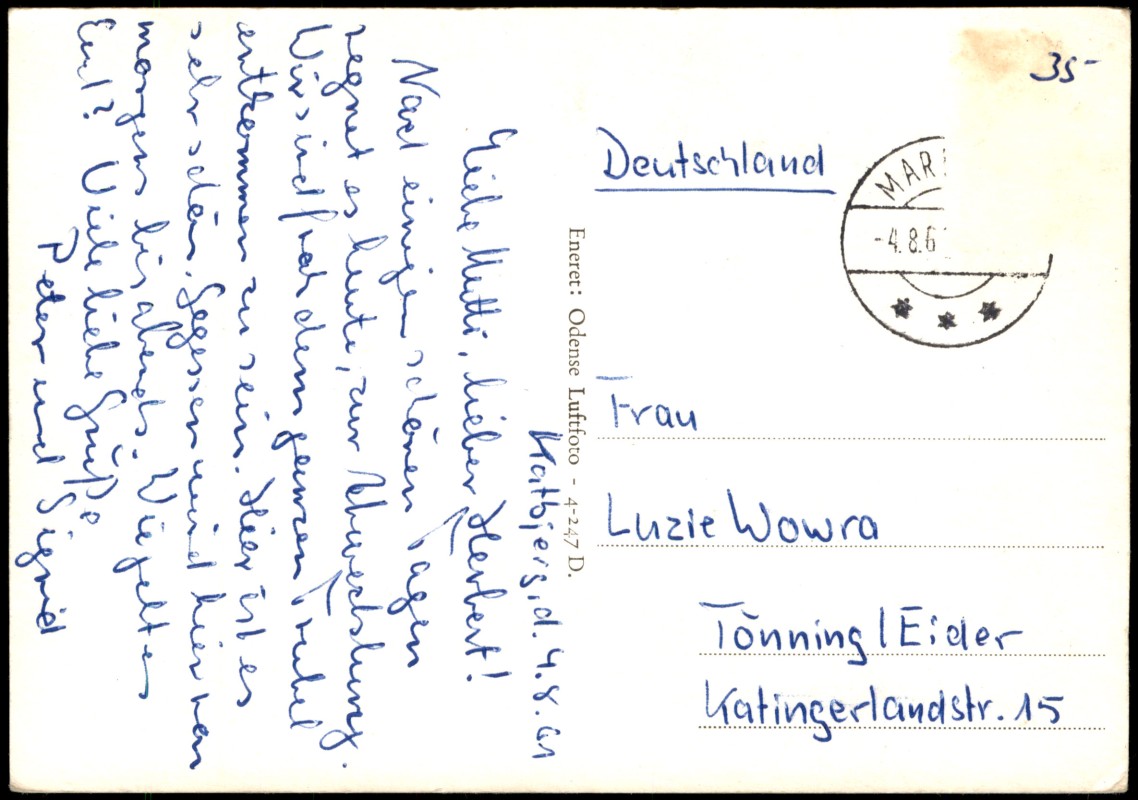 Katbjerg, d. 4.8.61
Liebe Mutti, lieber Herbert!
Nach einigen schönen Tagen
regnet es heute, zur Abwechslung.
Wir sind froh dem ganzen Trubel
entkommen zu sein. Hier ist es
sehr schön. Gegessen wird hier von
morgens bis abends. Wie geht es
Euch? Viele liebe Grüße
Peter und Sigrid
Eneret: Odense Luftfoto - 4-247 D.
35-
Deutschland
MAR
-4.8.6
Frau
Luzie Wowra
Tönning/Eider
Katingerlandstr. 15